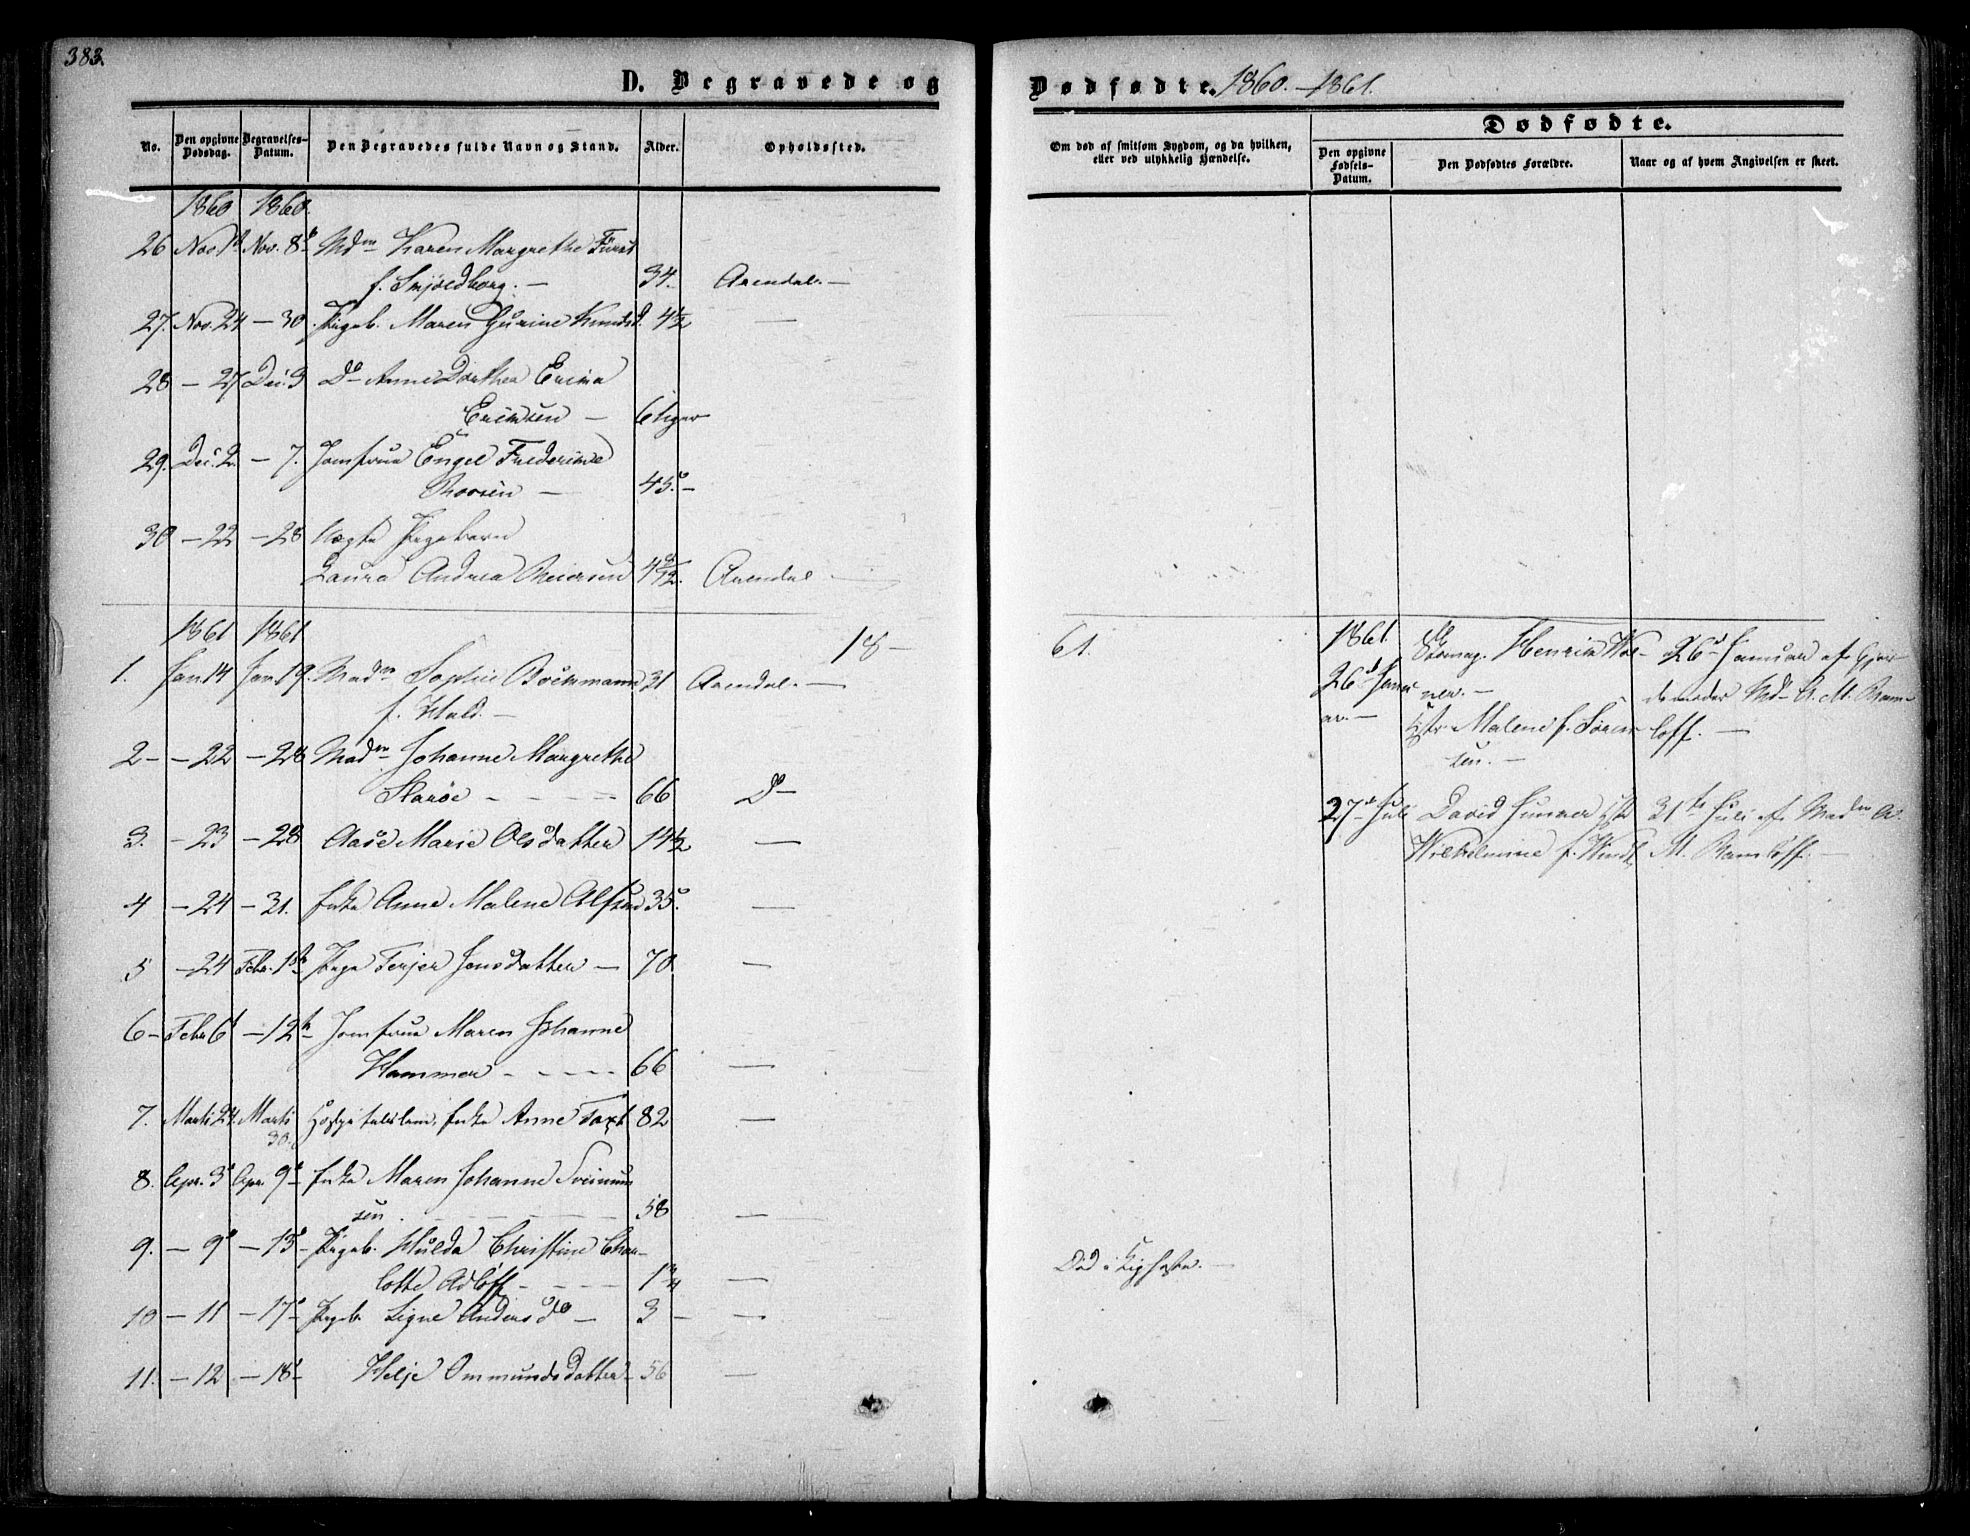 383.
D. Begravede og
No.
Den opgivne Dødsdag.
Begravelses-Datum.
Den Begravedes fulde Navn og Stand.
Alder.
Opholdssted.
1860 1860.
26 Nov. 1st Nov. 8de Mdm Karen Margrethe Fürst
f. Smjoldborg. — 34. Arendal. —
27. Nov. 24 — 30. Pigeb. Maren Gurine Knudsd. 4½ —
28 — 27 Dec. 3 Do Anne Dorthea Erica
Ericksen — 6 Uger
29. Dec. 2. — 7. Jomfrue Engel Frederikke
— 45. —
30 — 22 — 28 Uægte Pigebarn
Laura Andrea Reiersen Arendal —
1861 1861
18 —
1. Jan. 14 Jan. 19. Madm Sophie Bockmann 31 Arendal. —
f. Hald. —
2 — — 22 — 28 Madm Johanne Margrethe
— — — 66 Do —
3. — 23 — 28 Aase Marie Olsdatter 14½ —
4 — 24 — 31. Enke Anne Malene Alfsen 35. —
5 — 24 Febr. 1ste Pige Terjer Jensdatter — 70. —
6 — Febr 6t — 12te Jomfrue Maren Johanne
Hammer — — — 66 —
7. Marti 24. Marti 30. Hospitalslem, Enke Anne Toxt 82 —
8. Apr. 3de Apr. 9de Enke Maren Johanne
sen — — — 58 —
9. — 9de — 15de Pigeb. Hulda Christine Char-
lotte Adloff — — —
10 — 11 — 17de Pigeb. Signe Andersdr — 3 — —
11. — 12 — 18de Helje Ommundsdatter — 56 —
Dødfødte. 1860. — 1861.
Om død af smitsom Sygdom, og da hvilken, eller ved ulykkelig Hændelse.
Dødfødte.
Den opgivne Fødsels-Datum.
Den Dødfødtes Forældre.
Naar og af hvem Angivelsen er skeet.
61.
1861
26de Janu-
ar. —
Henrik Wer-
ner. —
Malene f. Soren-
sen. —
26de Januar af Gjor-
demoder Md. A. M. Ram-
loff. —
27de Juli David Hunner
Wilhelmine f. Windt
31te Juli af Madm A.
M. Ramloff. —
Død i Kighoste. —